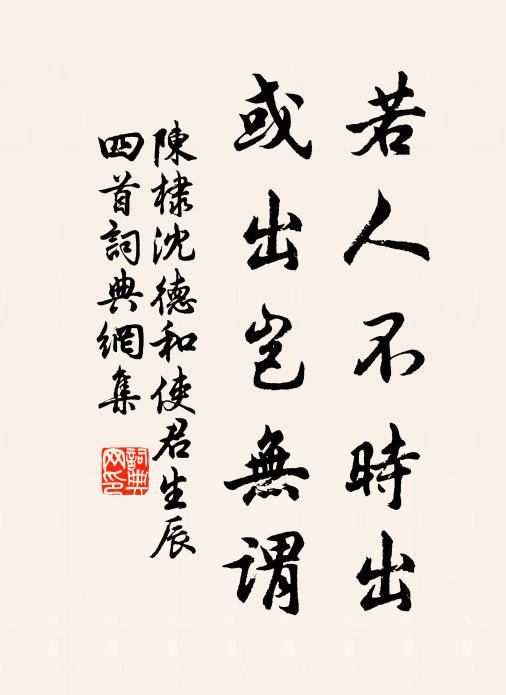 若人不時出
或出豈無謂
陳棣沈德和使君生辰
四首詞典網集
詞典网印